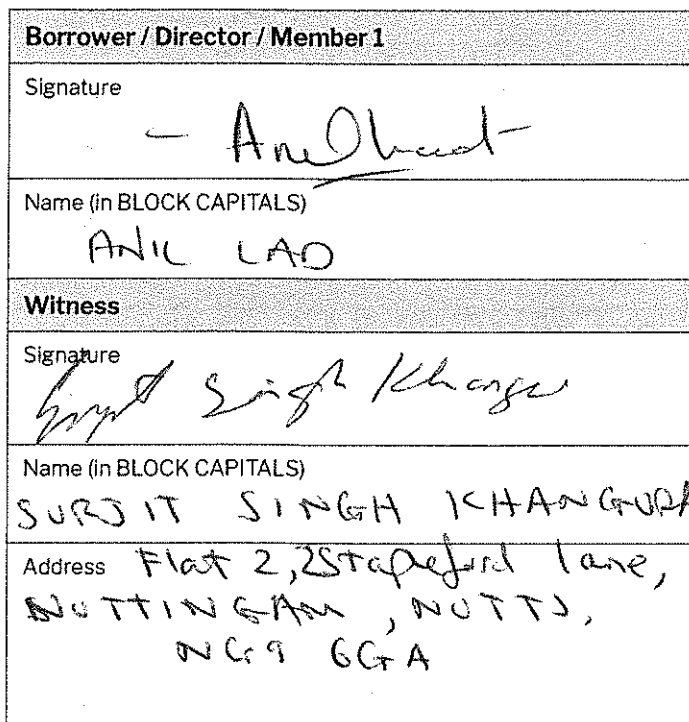 Borrower / Director / Member 1
Signature
Name (in BLOCK CAPITALS)
ANIL LAD
Witness
Signature
Singh
Name (in BLOCK CAPITALS)
SURJIT SINGH KHANGURA
Address Flat 2, 2 Stapleford lane,
NOTTINGAM, NOTTS,
NG9 6GA